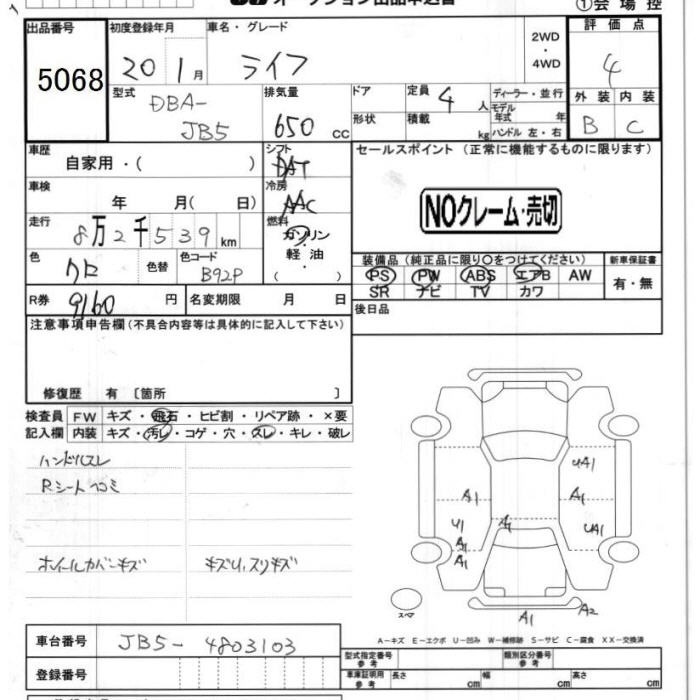 ①会場控
出品番号 初度登録年月 車名・グレード 2WD・4WD 評価点
5068 20 1月 ライフ 4
型式 DBA-JB5 排気量 650 cc ドア 定員 4 人 ディーラー・並行 外装 内装
形状 積載 kg モデル年式 年 ハンドル 左・右 B C
車歴 自家用・( ) シフト DAT セールスポイント (正常に機能するものに限ります)
車検 年 月( 日) 冷房 AAC
NOクレーム・売切
走行 8万2千539km 燃料 ガソリン・軽油・( )
色 クロ 色替 色コード B92P 装備品 (純正品に限り○をつけてください) 新車保証書
PS PW ABS エアB AW 有・無
SR ナビ TV カワ
R券 9160 円 名変期限 月 日 後日品
注意事項申告欄(不具合内容等は具体的に記入して下さい)
修復歴 有 〔箇所 〕
検査員 FW キズ・飛石・ヒビ割・リペア跡・×要
記入欄 内装 キズ・汚レ・コゲ・穴・スレ・キレ・破レ
ハンドルスレ
Rシートヘコミ
ホイールカバーキズ キズU,スリキズ
UA1
A1 A1
U1 A1 UA1
A1
A1
スペア A1 A2
A-キズ E-エクボ U-凹み W-補修跡 S-サビ C-腐食 XX-交換済
車台番号 JB5-4803103
型式指定番号 参考 類別区分番号 参考
登録番号 車庫証明用 参考 長さ cm 幅 cm 高さ cm